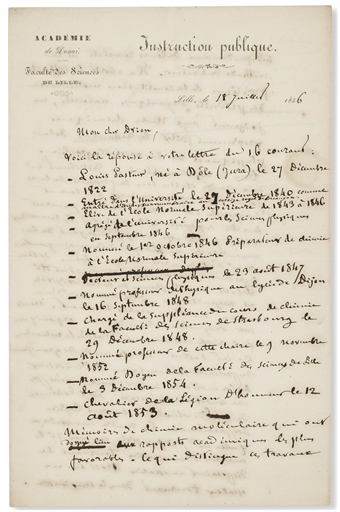 ACADÉMIE
de Douai
Instruction publique.
Faculté des Sciences
DE LILLE.
Lille, le 18 juillet 1856
Mon cher Drion,
Voici la réponse à votre lettre du 16 courant:
- Louis Pasteur, né à Dôle (Jura) le 27 Décembre
1822
- Entré dans l'université le 27 Décembre 1840 comme
- Elève de l'Ecole Normale Supérieure de 1843 à 1846
- Agrégé de l'université pour les Sciences physiques
en Septembre 1846
- Nommé le 1er Octobre 1846 Préparateur de chimie
à l'Ecole Normale Supérieure
- Docteur ès sciences physiques le 23 août 1847
- Nommé professeur de physique au lycée de Dijon
le 16 Septembre 1848
- Chargé de la Suppléance du cours de chimie
de la Faculté des Sciences de Strasbourg le
29 Décembre 1848.
- Nommé professeur de cette chaire le 9 novembre
1852
- Nommé Doyen de la Faculté des Sciences de Lille
le 3 Décembre 1854.
- Chevalier de la Légion D'honneur le 12
Août 1853.
Mémoires de chimie moléculaire qui ont
donné lieu aux rapports académiques les plus
favorables - ce qui distingue ces travaux